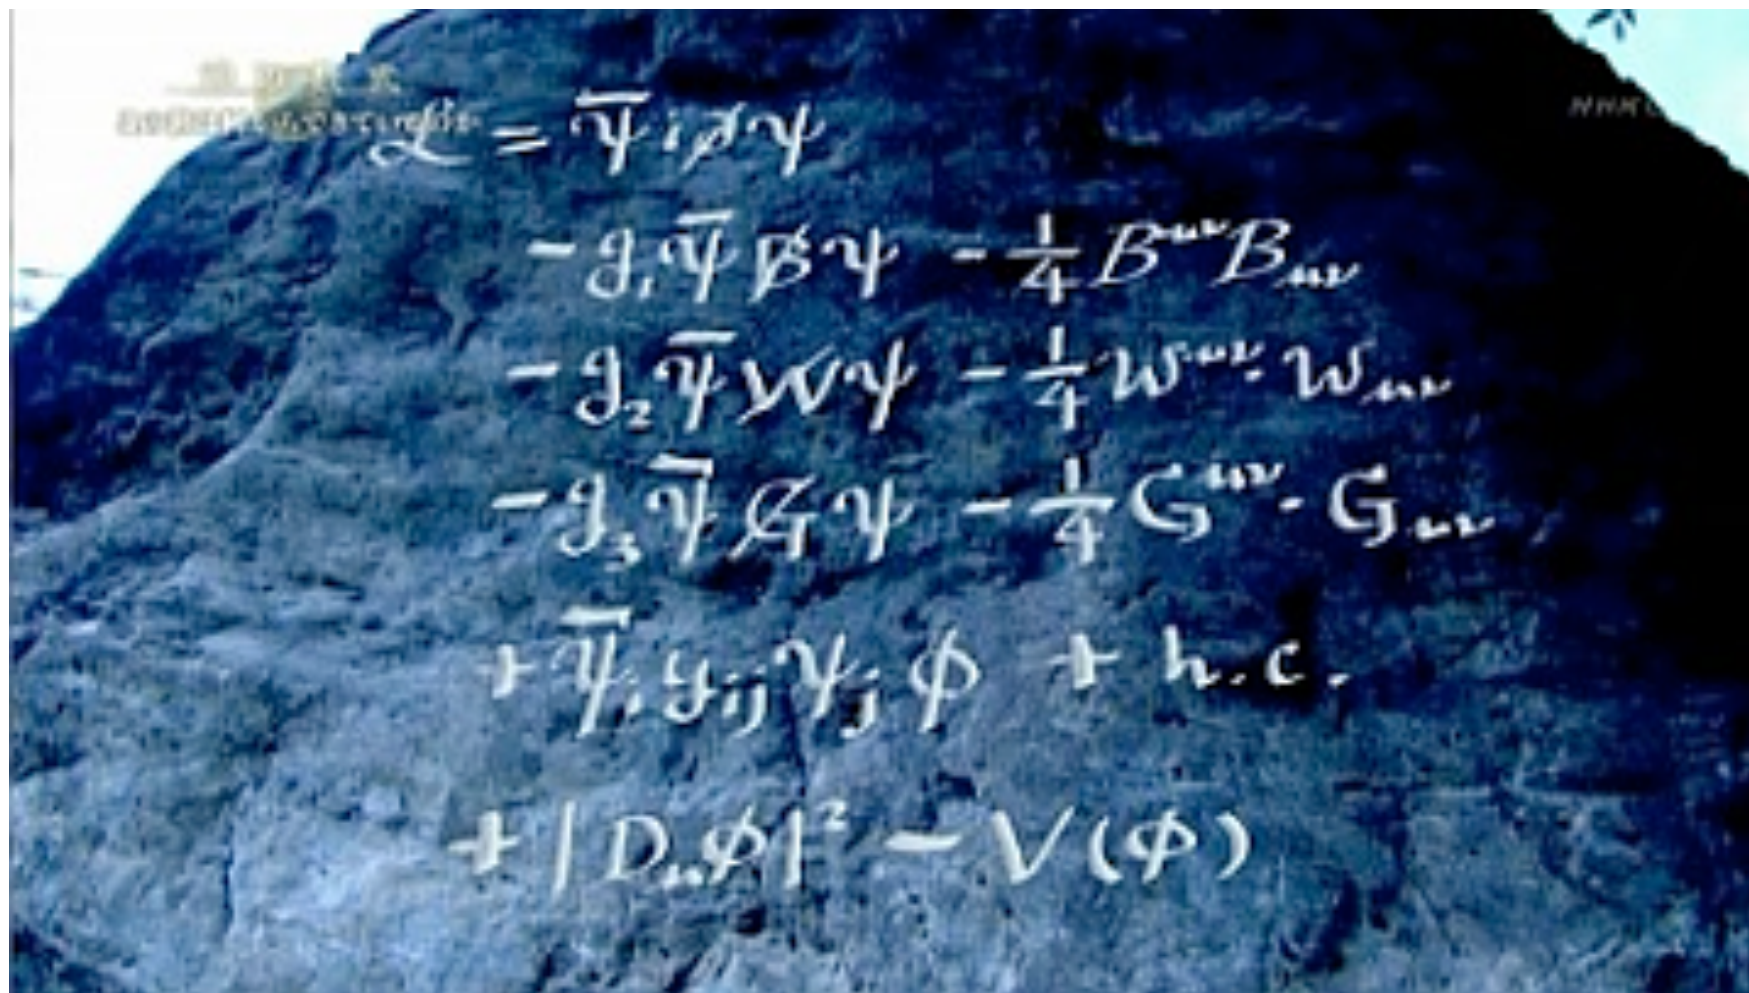 NHK
ℒ = ψ̄ i∂̸ ψ
- g₁ ψ̄ B̸ ψ - 1/4 B^{μν} B_{μν}
- g₂ ψ̄ W̸ ψ - 1/4 W^{μν} · W_{μν}
- g₃ ψ̄ G̸ ψ - 1/4 G^{μν} · G_{μν}
+ ψ̄ᵢ yᵢⱼ ψⱼ ϕ + h.c.
+ |D_μ ϕ|² - V(ϕ)